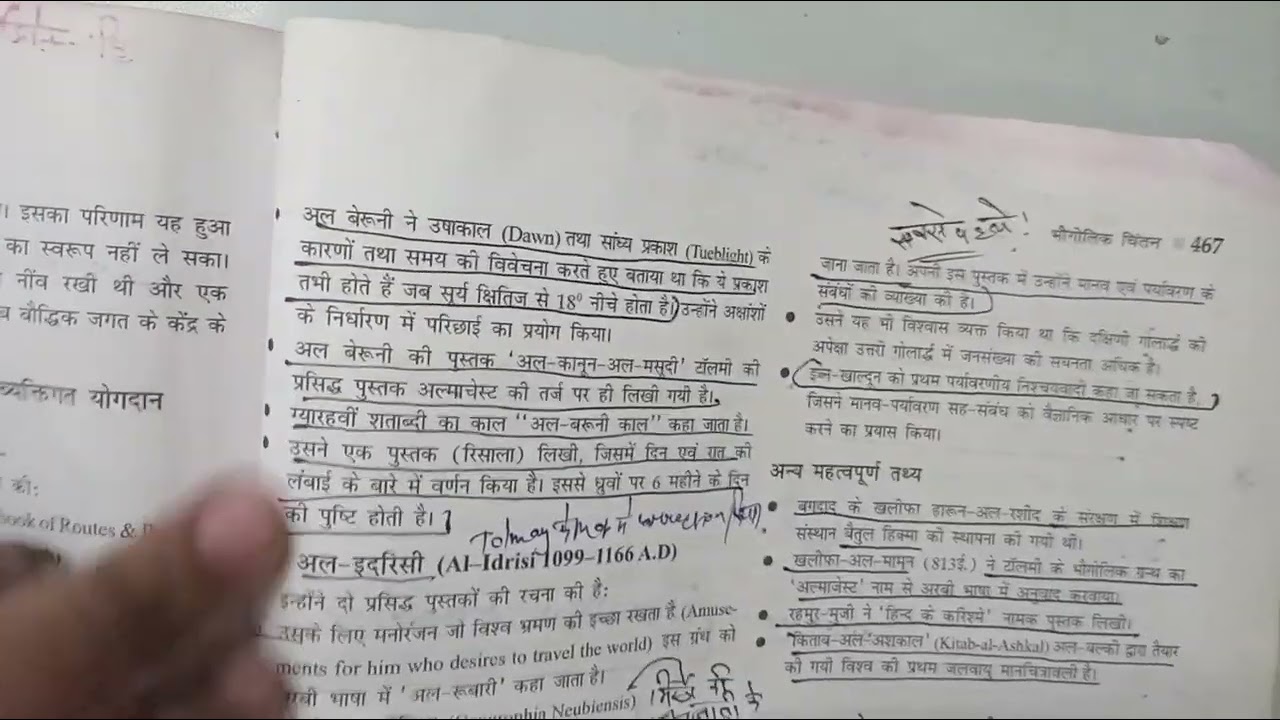 । इसका परिणाम यह हुआ
का स्वरूप नहीं ले सका।
नींव रखी थी और एक
बौद्धिक जगत के केंद्र के
व्यक्तिगत योगदान
की:
ook of Routes &
अल बेरूनी ने उषाकाल (Dawn) तथा सांध्य प्रकाश (Tueblight) के
कारणों तथा समय की विवेचना करते हुए बताया था कि ये प्रकाश
तभी होते हैं जब सूर्य क्षितिज से 18⁰ नीचे होता है। उन्होंने अक्षांशों
के निर्धारण में परिछाई का प्रयोग किया।
अल बेरूनी की पुस्तक 'अल-कानून-अल-मसूदी' टॉलमी की
प्रसिद्ध पुस्तक अल्माचेस्ट की तर्ज पर ही लिखी गयी है।
ग्यारहवीं शताब्दी का काल "अल-बरूनी काल" कहा जाता है।
उसने एक पुस्तक (रिसाला) लिखी, जिसमें दिन एवं रात की
लंबाई के बारे में वर्णन किया है। इससे ध्रुवों पर 6 महीने के दिन
की पुष्टि होती है।
अल-इदरिसी (Al–Idrisi 1099–1166 A.D)
इन्होंने दो प्रसिद्ध पुस्तकों की रचना की है:
उसके लिए मनोरंजन जो विश्व भ्रमण की इच्छा रखता है (Amuse-
ments for him who desires to travel the world) इस ग्रंथ को
भाषा में 'अल-रूबारी' कहा जाता है।
Neubiensis)
भौगोलिक चिंतन 467
जाना जाता है। अपनी इस पुस्तक में उन्होंने मानव एवं पर्यावरण के
संबंधों की व्याख्या की है।
उसने यह भी विश्वास व्यक्त किया था कि दक्षिणी गोलार्द्ध की
अपेक्षा उत्तरी गोलार्द्ध में जनसंख्या की सघनता अधिक है।
इब्न-खाल्दून को प्रथम पर्यावरणीय निश्चयवादी कहा जा सकता है,
जिसने मानव-पर्यावरण सह-संबंध को वैज्ञानिक आधार पर स्पष्ट
करने का प्रयास किया।
अन्य महत्वपूर्ण तथ्य
बगदाद के खलीफा हारून-अल-रशीद के संरक्षण में शिक्षण
संस्थान बैतुल हिक्मा की स्थापना की गयी थी।
खलीफा-अल-मामून (813ई.) ने टॉलमी के भौगोलिक ग्रन्थ का
'अल्माजेस्ट' नाम से अरबी भाषा में अनुवाद करवाया।
रहमुर-मुजी ने 'हिन्द के करिश्मे' नामक पुस्तक लिखी।
किताब-अल-'अशकाल' (Kitab-al-Ashkal) अल-बल्की द्वारा तैयार
की गयी विश्व की प्रथम जलवायु मानचित्रावली है।